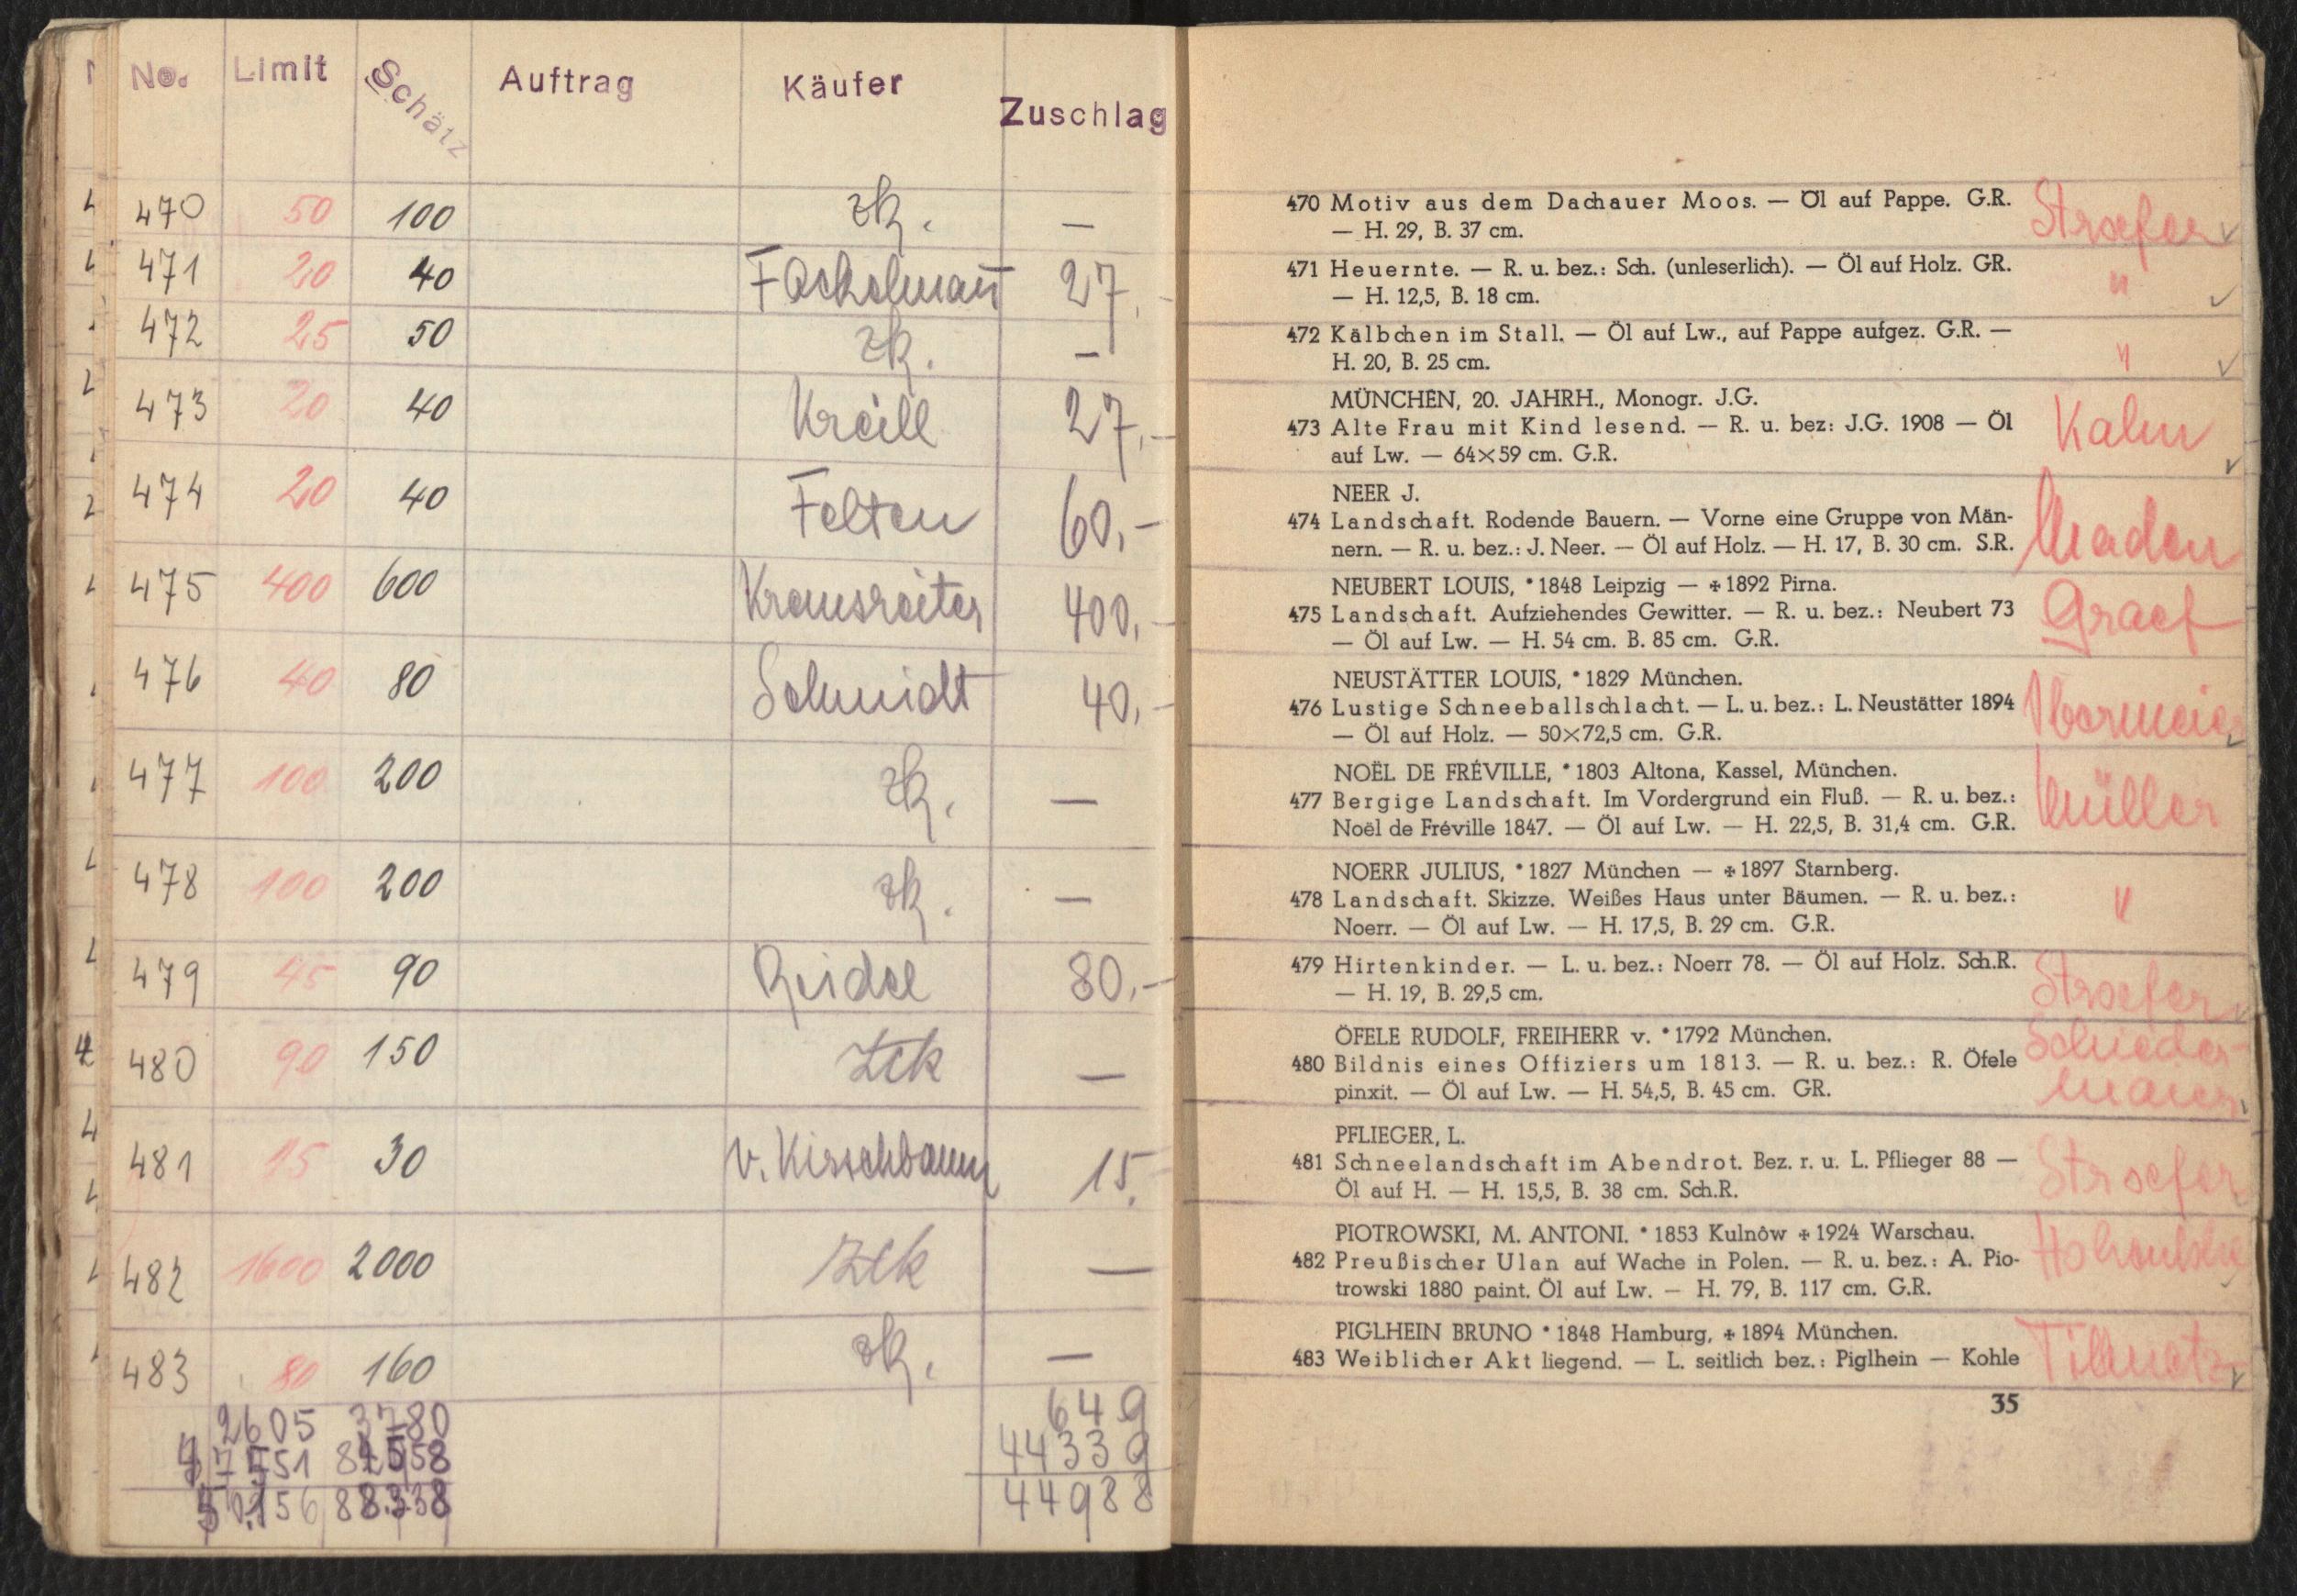 No. Limit Schätz Auftrag Käufer Zuschlag
470 50 100 zk. —
471 20 40 Fackelmann 27,-
472 25 50 zk. —
473 20 40 Kreill 27,-
474 20 40 Felten 60,-
475 400 600 Krausreiter 400,-
476 40 80 Schmidt 40,-
477 100 200 zk. —
478 100 200 zk. —
479 45 90 Reidel 80,-
480 90 150 Zck —
481 15 30 v. Kirschbaum 15.
482 1600 2000 Zck —
483 80 160 zk. —
2605 3780 649
44339
88.338 44988
470 Motiv aus dem Dachauer Moos. — Öl auf Pappe. G.R. Stroefer ✓
— H. 29, B. 37 cm.
471 Heuernte. — R. u. bez.: Sch. (unleserlich). — Öl auf Holz. GR. "
— H. 12,5, B. 18 cm. ✓
472 Kälbchen im Stall. — Öl auf Lw., auf Pappe aufgez. G.R. — "
H. 20, B. 25 cm. ✓
MÜNCHEN, 20. JAHRH., Monogr. J.G.
473 Alte Frau mit Kind lesend. — R. u. bez: J.G. 1908 — Öl Kalm
auf Lw. — 64×59 cm. G.R. ✓
NEER J.
474 Landschaft. Rodende Bauern. — Vorne eine Gruppe von Män-
nern. — R. u. bez.: J. Neer. — Öl auf Holz. — H. 17, B. 30 cm. S.R.
NEUBERT LOUIS, *1848 Leipzig — ✠1892 Pirna.
475 Landschaft. Aufziehendes Gewitter. — R. u. bez.: Neubert 73 Graef
— Öl auf Lw. — H. 54 cm. B. 85 cm. G.R.
NEUSTÄTTER LOUIS, *1829 München.
476 Lustige Schneeballschlacht. — L. u. bez.: L. Neustätter 1894
— Öl auf Holz. — 50×72,5 cm. G.R. ✓
NOËL DE FRÉVILLE, *1803 Altona, Kassel, München.
477 Bergige Landschaft. Im Vordergrund ein Fluß. — R. u. bez.: Müller
Noël de Fréville 1847. — Öl auf Lw. — H. 22,5, B. 31,4 cm. G.R.
NOERR JULIUS, *1827 München — ✠1897 Starnberg.
478 Landschaft. Skizze. Weißes Haus unter Bäumen. — R. u. bez.: "
Noerr. — Öl auf Lw. — H. 17,5, B. 29 cm. G.R.
479 Hirtenkinder. — L. u. bez.: Noerr 78. — Öl auf Holz. Sch.R. Stroefer
— H. 19, B. 29,5 cm.
ÖFELE RUDOLF, FREIHERR v. *1792 München. Schieder-
480 Bildnis eines Offiziers um 1813. — R. u. bez.: R. Öfele
pinxit. — Öl auf Lw. — H. 54,5, B. 45 cm. GR. maier
PFLIEGER, L.
481 Schneelandschaft im Abendrot. Bez. r. u. L. Pflieger 88 — Stroefer
Öl auf H. — H. 15,5, B. 38 cm. Sch.R.
PIOTROWSKI, M. ANTONI. *1853 Kulnôw ✠1924 Warschau.
482 Preußischer Ulan auf Wache in Polen. — R. u. bez.: A. Pio-
trowski 1880 paint. Öl auf Lw. — H. 79, B. 117 cm. G.R.
PIGLHEIN BRUNO *1848 Hamburg, ✠1894 München.
483 Weiblicher Akt liegend. — L. seitlich bez.: Piglhein — Kohle Tillmetz ✓
35